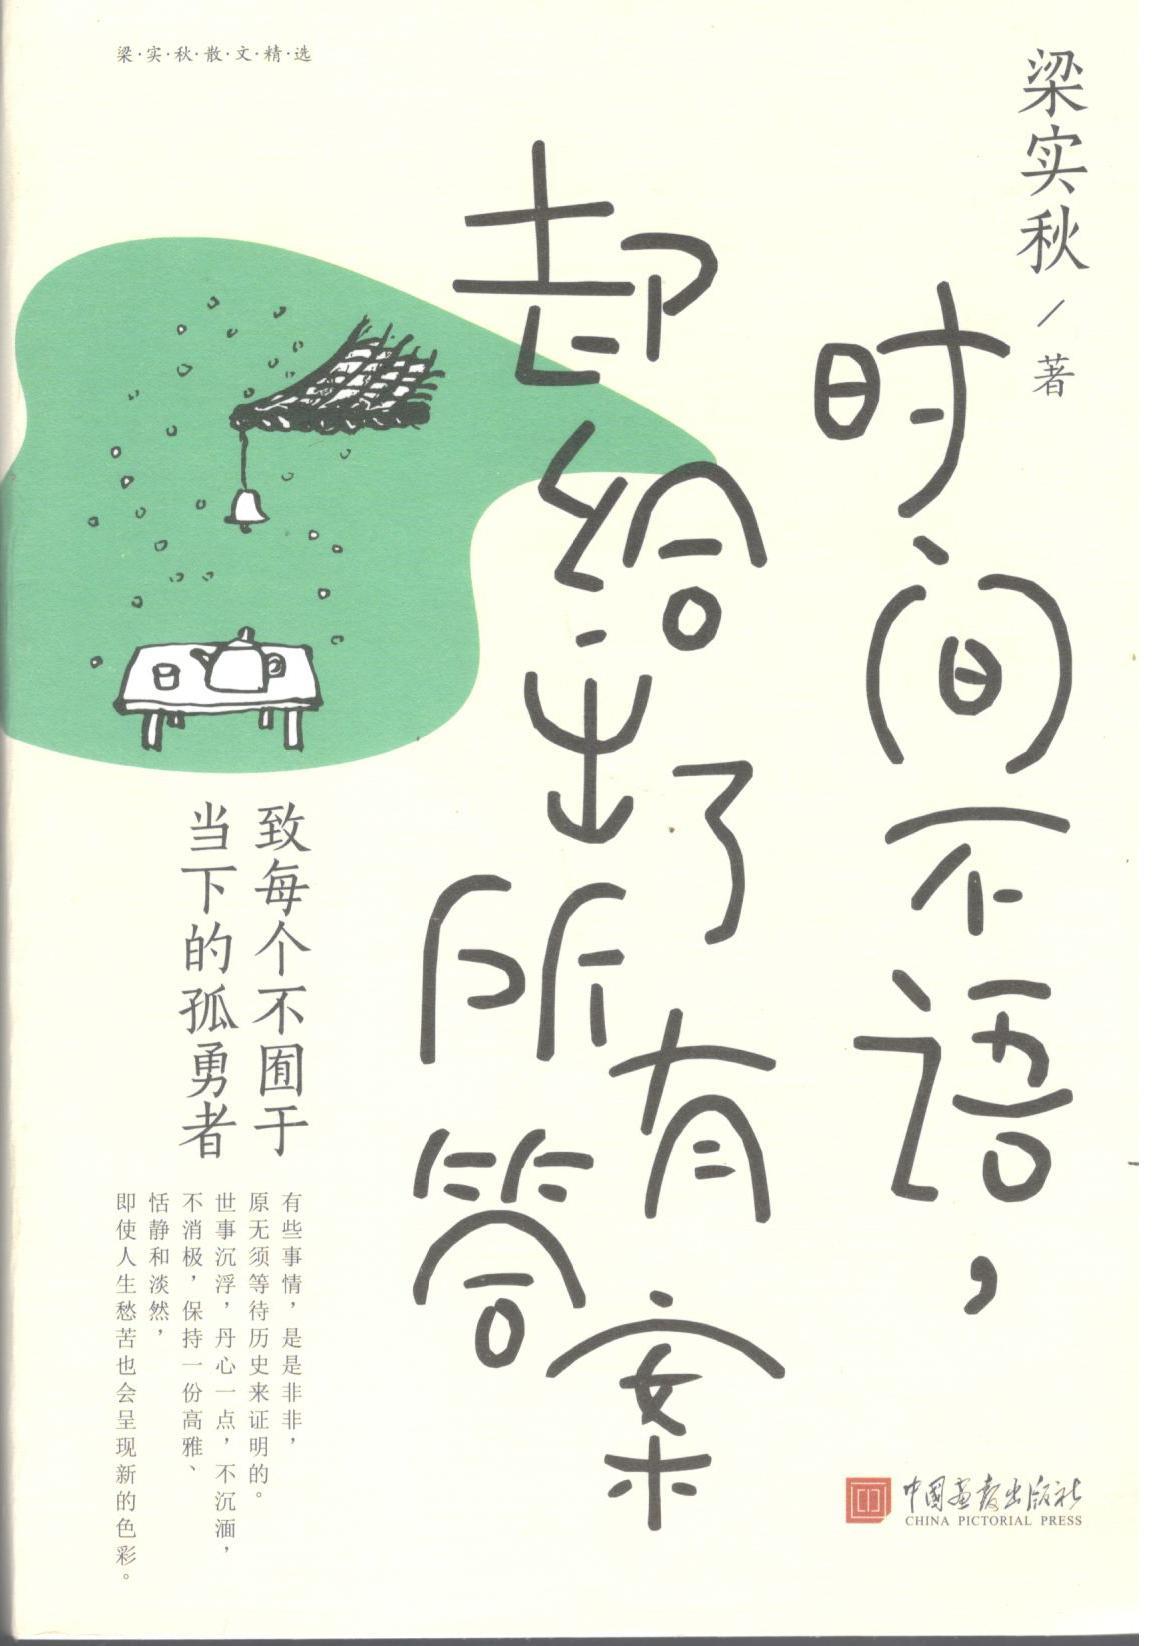 梁·实·秋·散·文·精·选
梁实秋/著
时间不语，
却给出了所有答案
致每个不囿于
当下的孤勇者
有些事情，是是非非，
原无须等待历史来证明的。
世事沉浮，丹心一点，不沉湎，
不消极，保持一份高雅、
恬静和淡然，
即使人生愁苦也会呈现新的色彩。
中国画报出版社
CHINA PICTORIAL PRESS